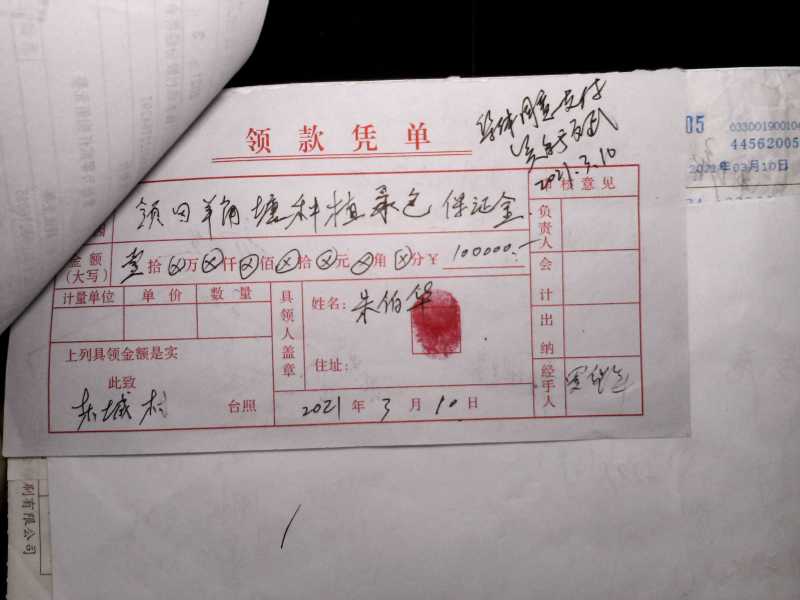 领款凭单
同意支付
2021.3.10
05
033001900104
44562005
2021年03月10日
审核意见
领回羊角塘种植承包保证金
金额
(大写)
壹拾⊗万⊗仟⊗佰⊗拾⊗元⊗角⊗分¥ 100000.—
计量单位 单价 数量
具领人盖章
姓名：朱伯华
住址：
上列具领金额是实
此致
赤城村 台照
2021年3月10日
负责人
会计
出纳
经手人
刷有限公司